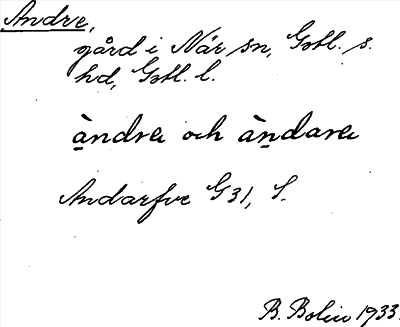 Andre,
gård i När sn, Gotl. s.
hd, Gotl. l.
àndrα och àndarα
Andarfve G31, S.
B. Bolin 1933.